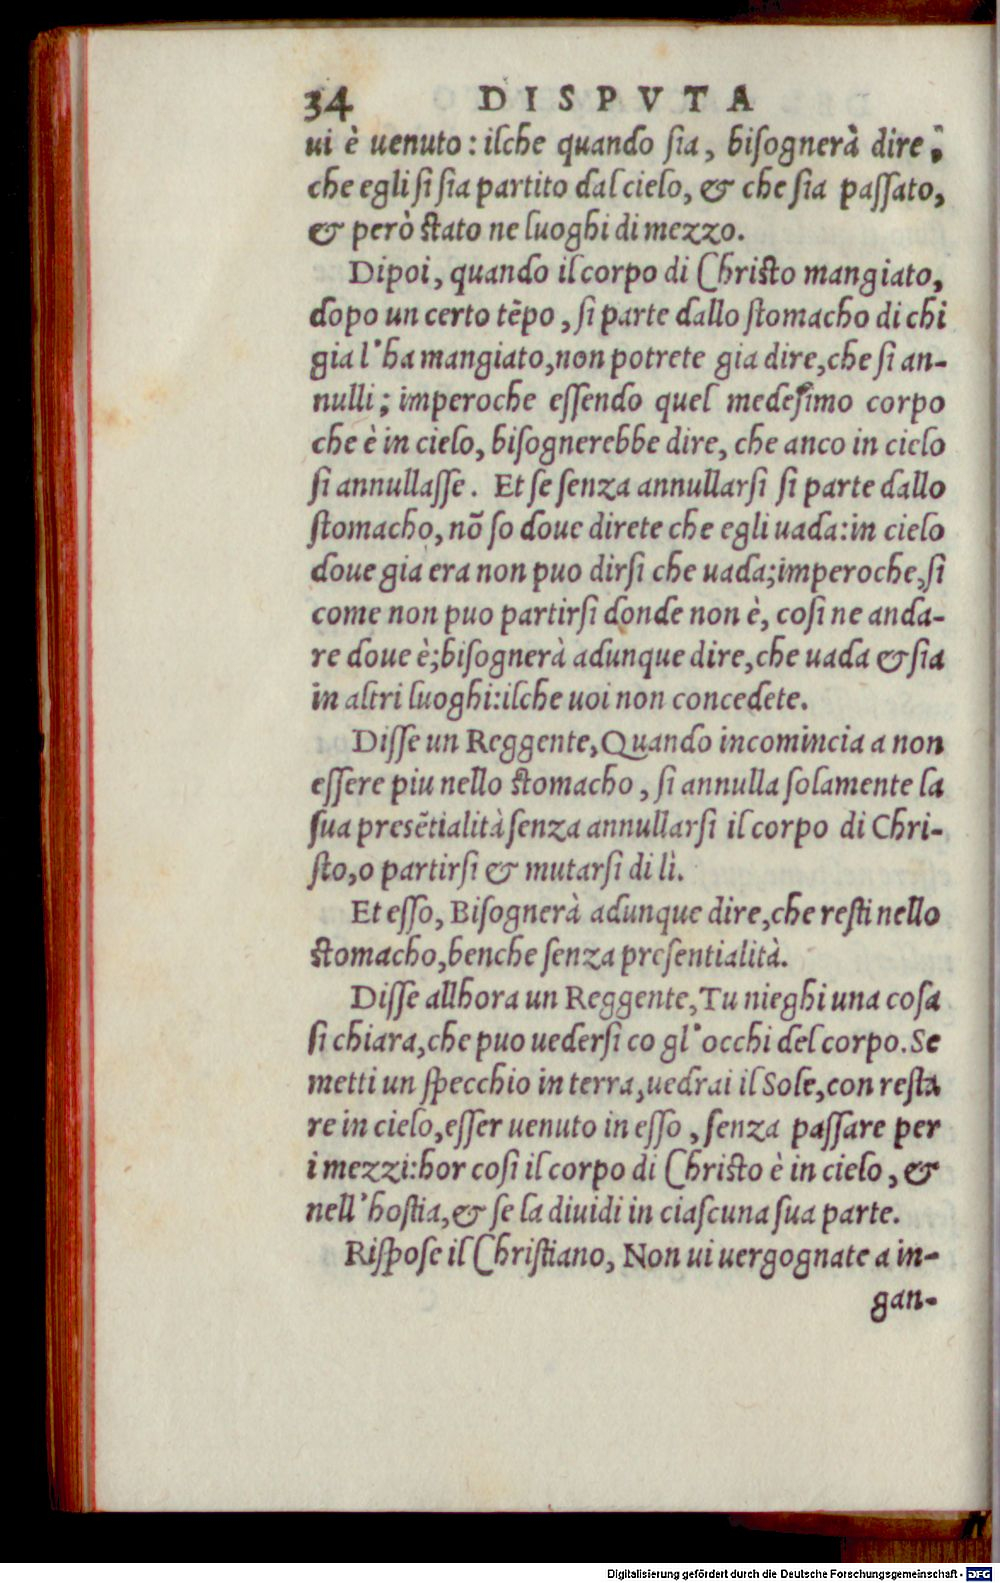 34 DISPVTA
ui è uenuto: ilche quando ſia, biſognerà dire,
che egli ſi ſia partito dal cielo, & che ſia paſſato,
& però ſtato ne luoghi di mezzo.
Dipoi, quando il corpo di Chriſto mangiato,
dopo un certo tẽpo, ſi parte dallo ſtomacho di chi
gia l'ha mangiato, non potrete gia dire, che ſi an-
nulli; imperoche eſſendo quel medeſimo corpo
che è in cielo, biſognerebbe dire, che anco in cielo
ſi annullaſſe. Et ſe ſenza annullarſi ſi parte dallo
ſtomacho, nõ ſo doue direte che egli uada: in cielo
doue gia era non puo dirſi che uada; imperoche, ſi
come non puo partirſi donde non è, coſi ne anda-
re doue è; biſognerà adunque dire, che uada & ſia
in altri luoghi: ilche uoi non concedete.
Diſſe un Reggente, Quando incomincia a non
eſſere piu nello ſtomacho, ſi annulla ſolamente la
ſua presẽtialità ſenza annullarſi il corpo di Chri-
ſto, o partirſi & mutarſi di lì.
Et eſſo, Biſognerà adunque dire, che reſti nello
ſtomacho, benche ſenza preſentialità.
Diſſe allhora un Reggente, Tu nieghi una coſa
ſi chiara, che puo uederſi co gl'occhi del corpo. Se
metti un ſpecchio in terra, uedrai il Sole, con reſta
re in cielo, eſſer uenuto in eſſo, ſenza paſſare per
i mezzi: hor coſi il corpo di Chriſto è in cielo, &
nell'hoſtia, & ſe la diuidi in ciaſcuna ſua parte.
Riſpoſe il Chriſtiano, Non ui uergognate a in-
gan-
Digitalisierung gefördert durch die Deutsche Forschungsgemeinschaft - DFG